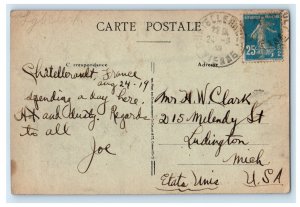 CARTE POSTALE
Correspondance
Adresse
Chatellerault, France
aug 24-19
spending a day here.
and dusty. Regards
to all
Joe
Mr H. W. Clark
215 Melendy St
Ludington
Mich
Etats Unis U.S.A
25
VIENNE